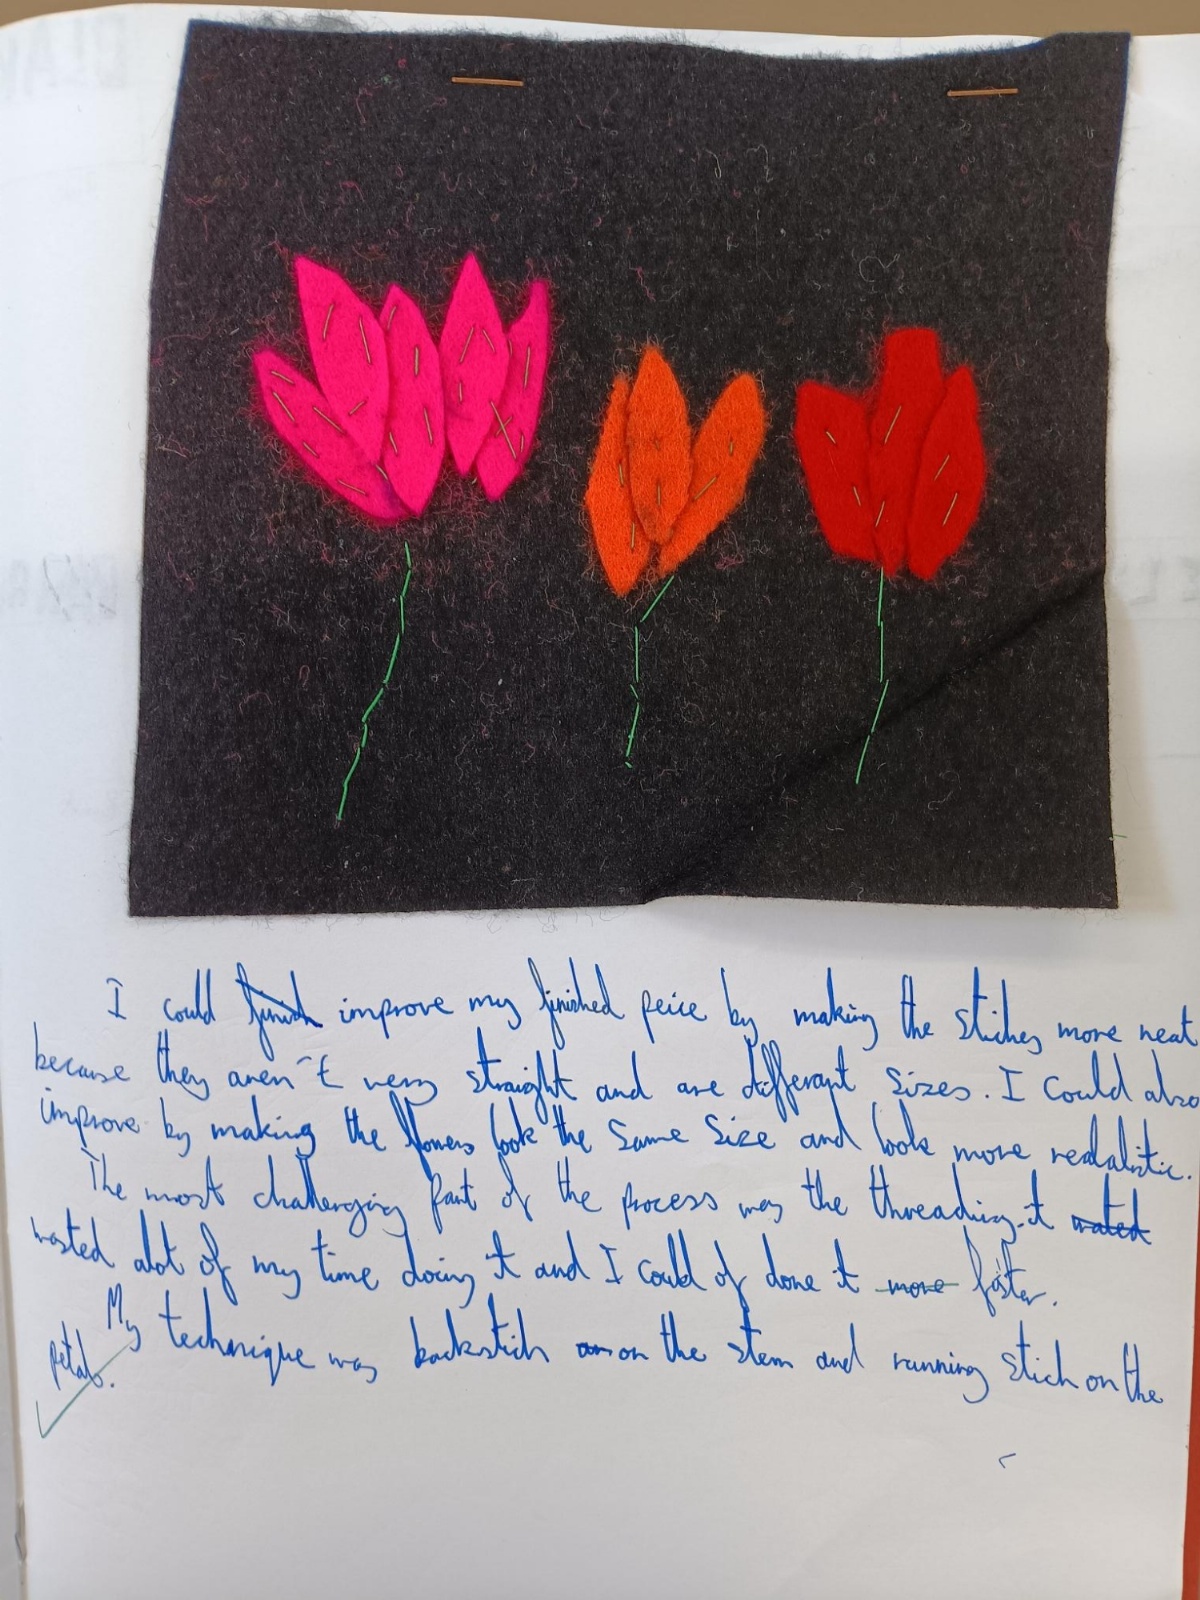 I could finish improve my finished peice by making the stiches more neat
because they aren't very straight and are differant sizes. I could also
improve by making the flowers look the same size and look more realalistic.
The most challenging part of the process was the threading.it wated
wasted alot of my time doing it and I could of done it more faster.
My technique was backstich an on the stem and running stich on the
petals.